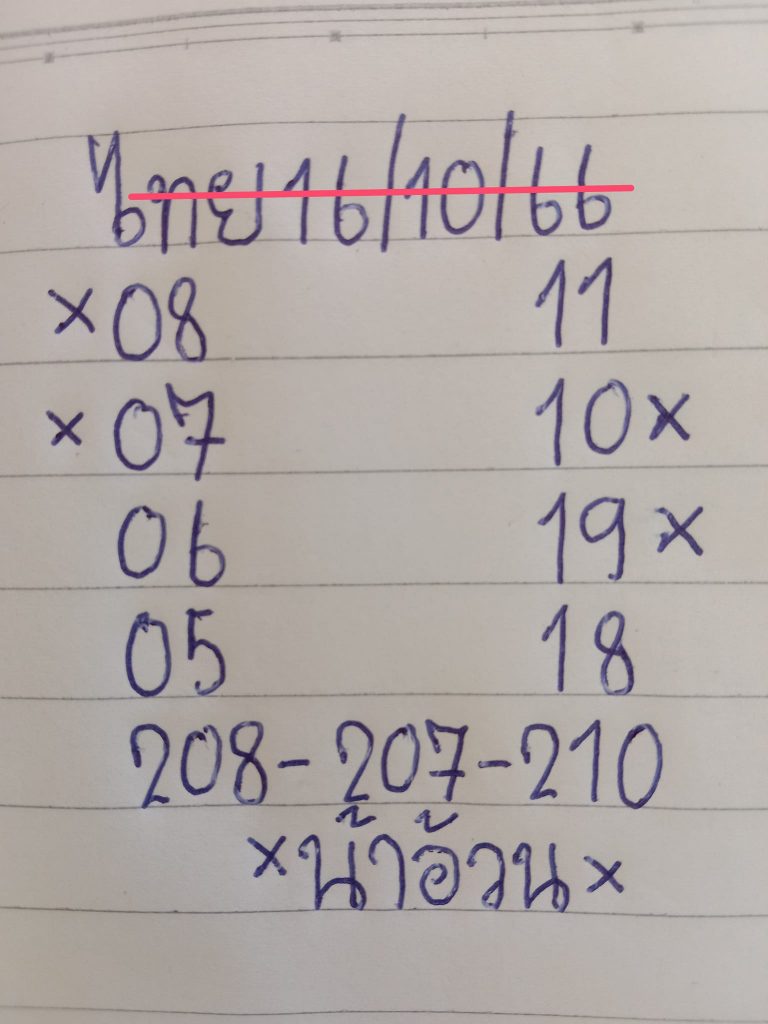 ไทย 16/10/66
×08 11
×07 10×
06 19×
05 18
208-207-210
×น้าอ้วน×